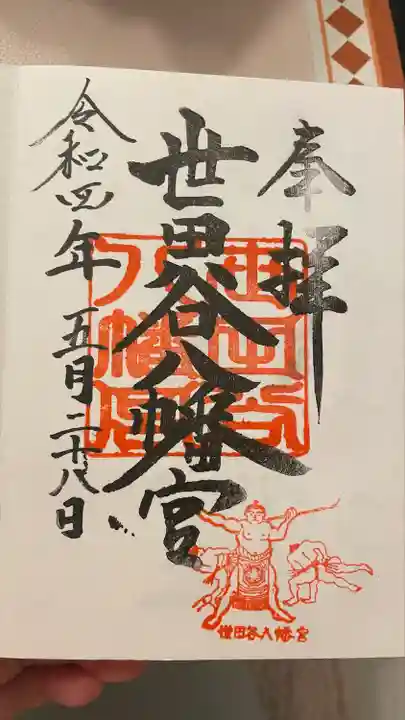 奉拝
世田谷八幡宮
令和四年五月二十八日
世田谷八幡宮
世田谷八幡宮